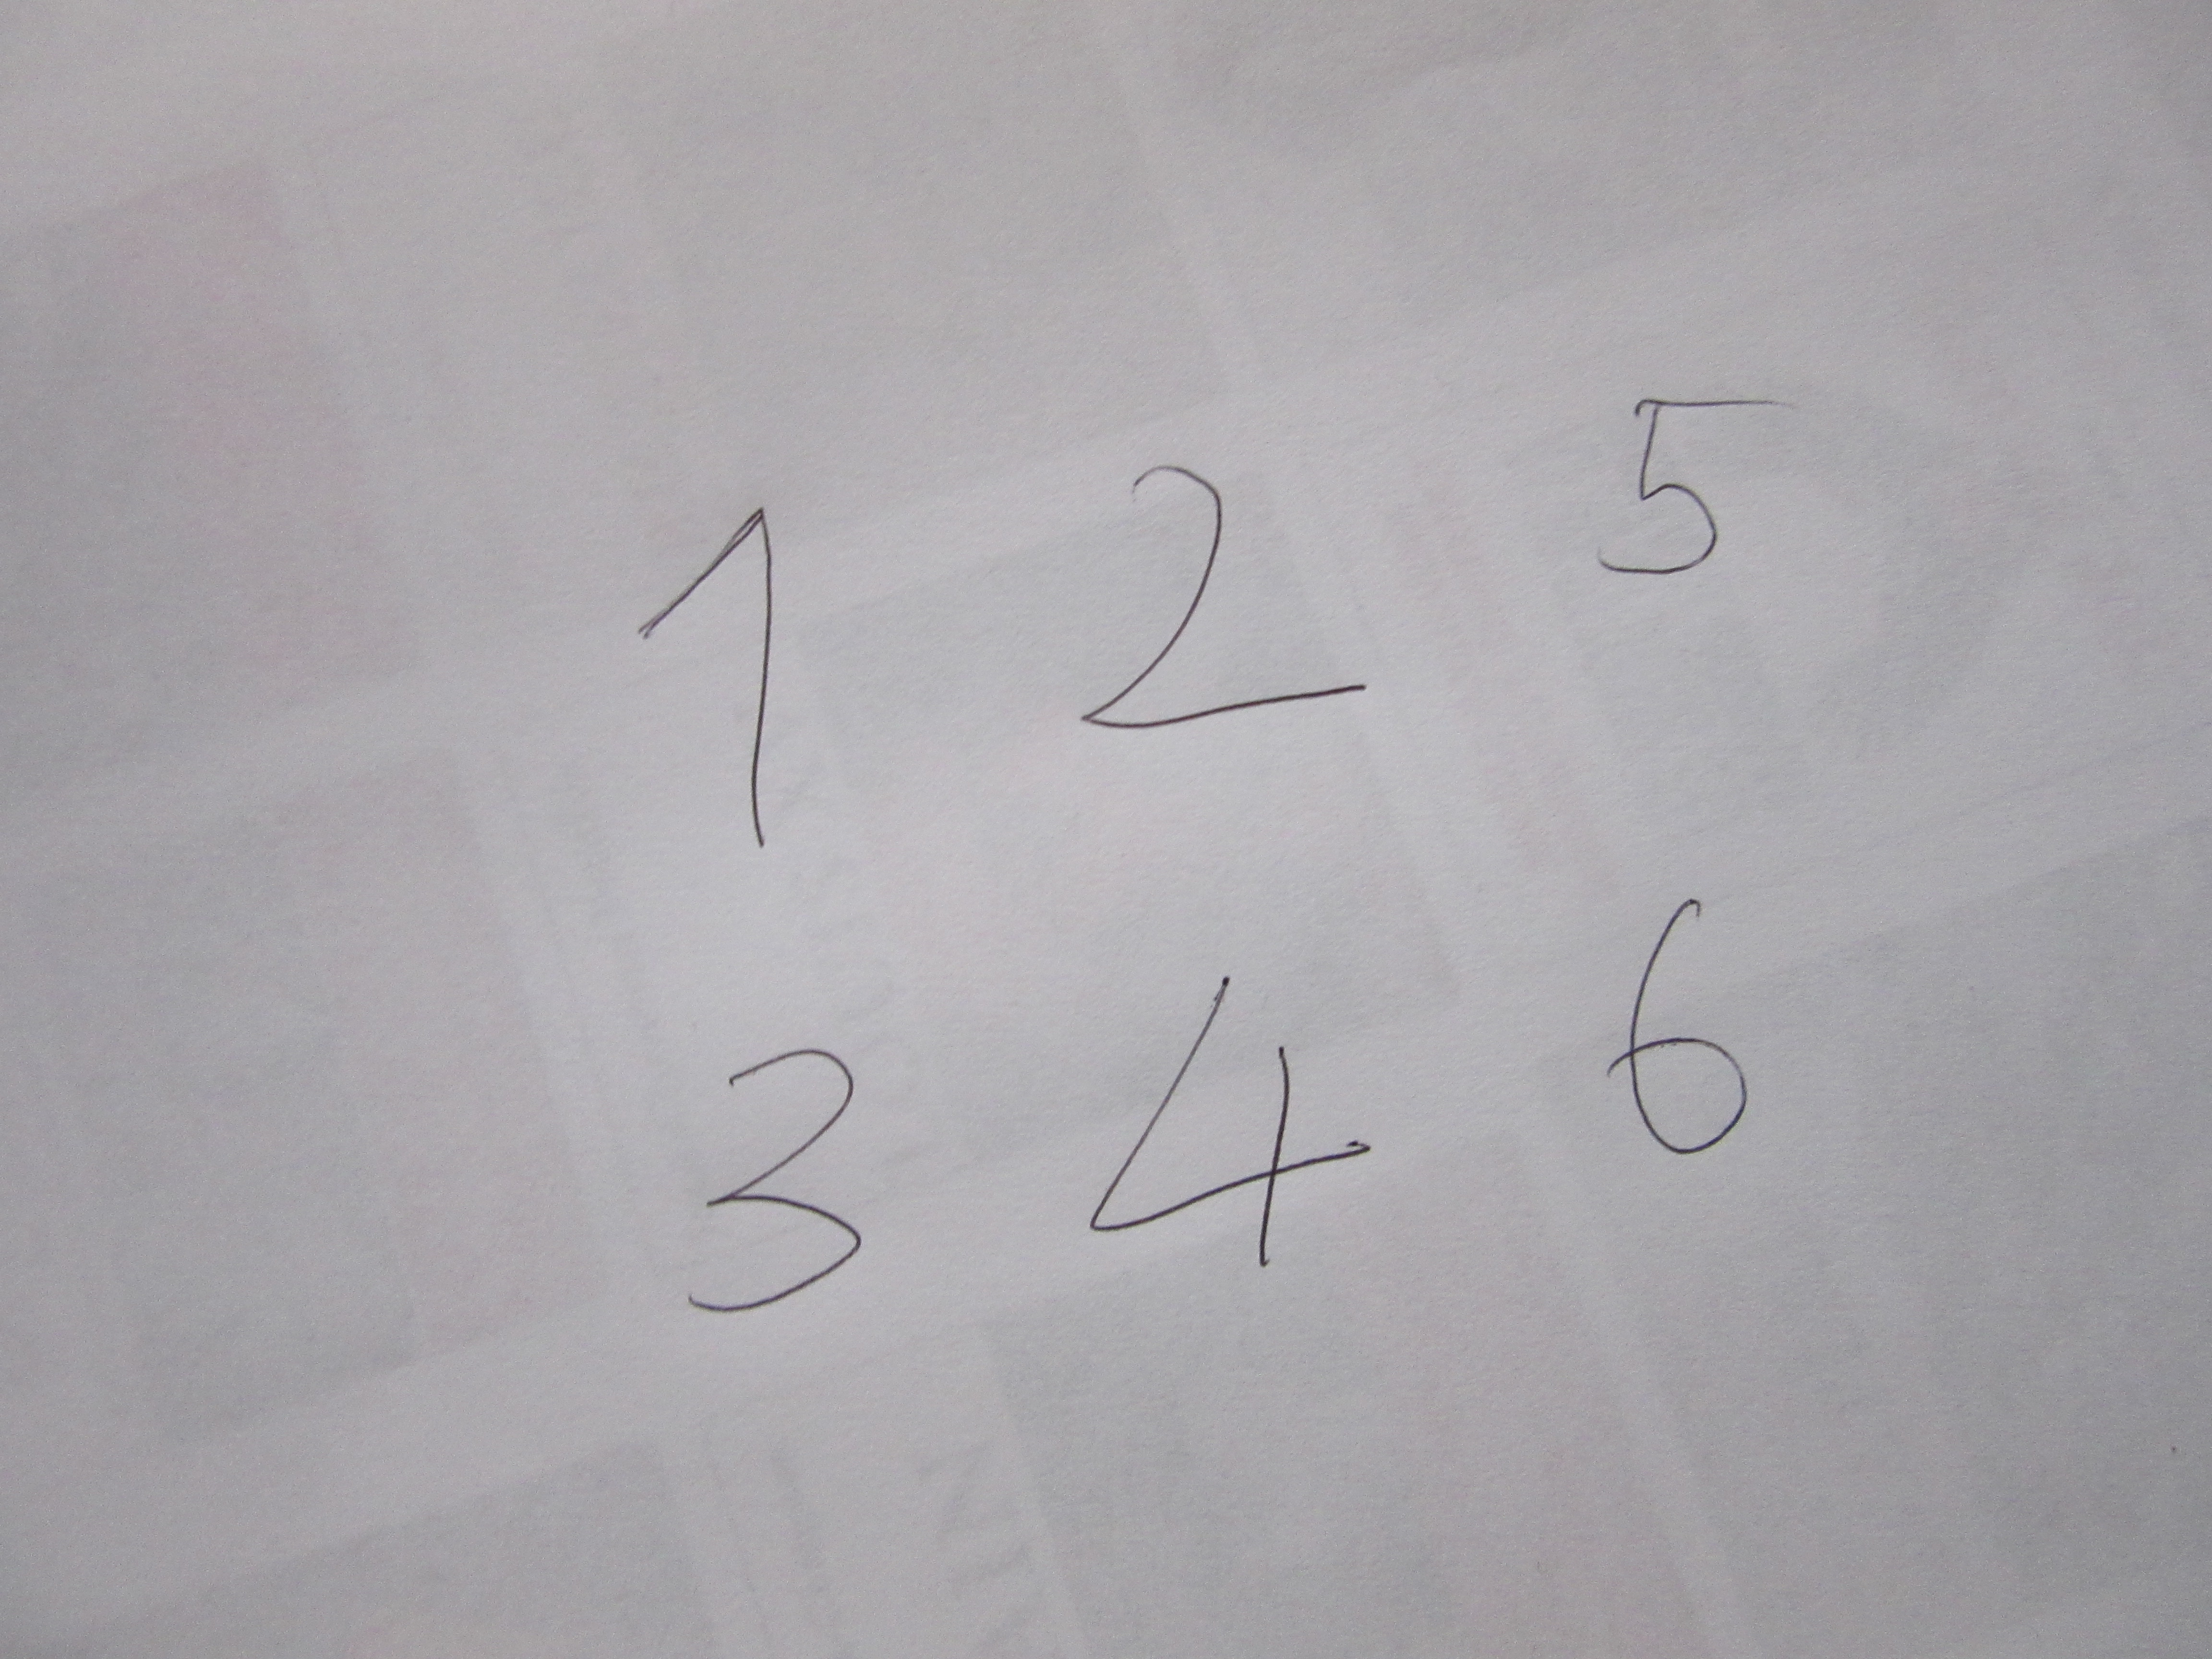 1 2 5
3 4 6